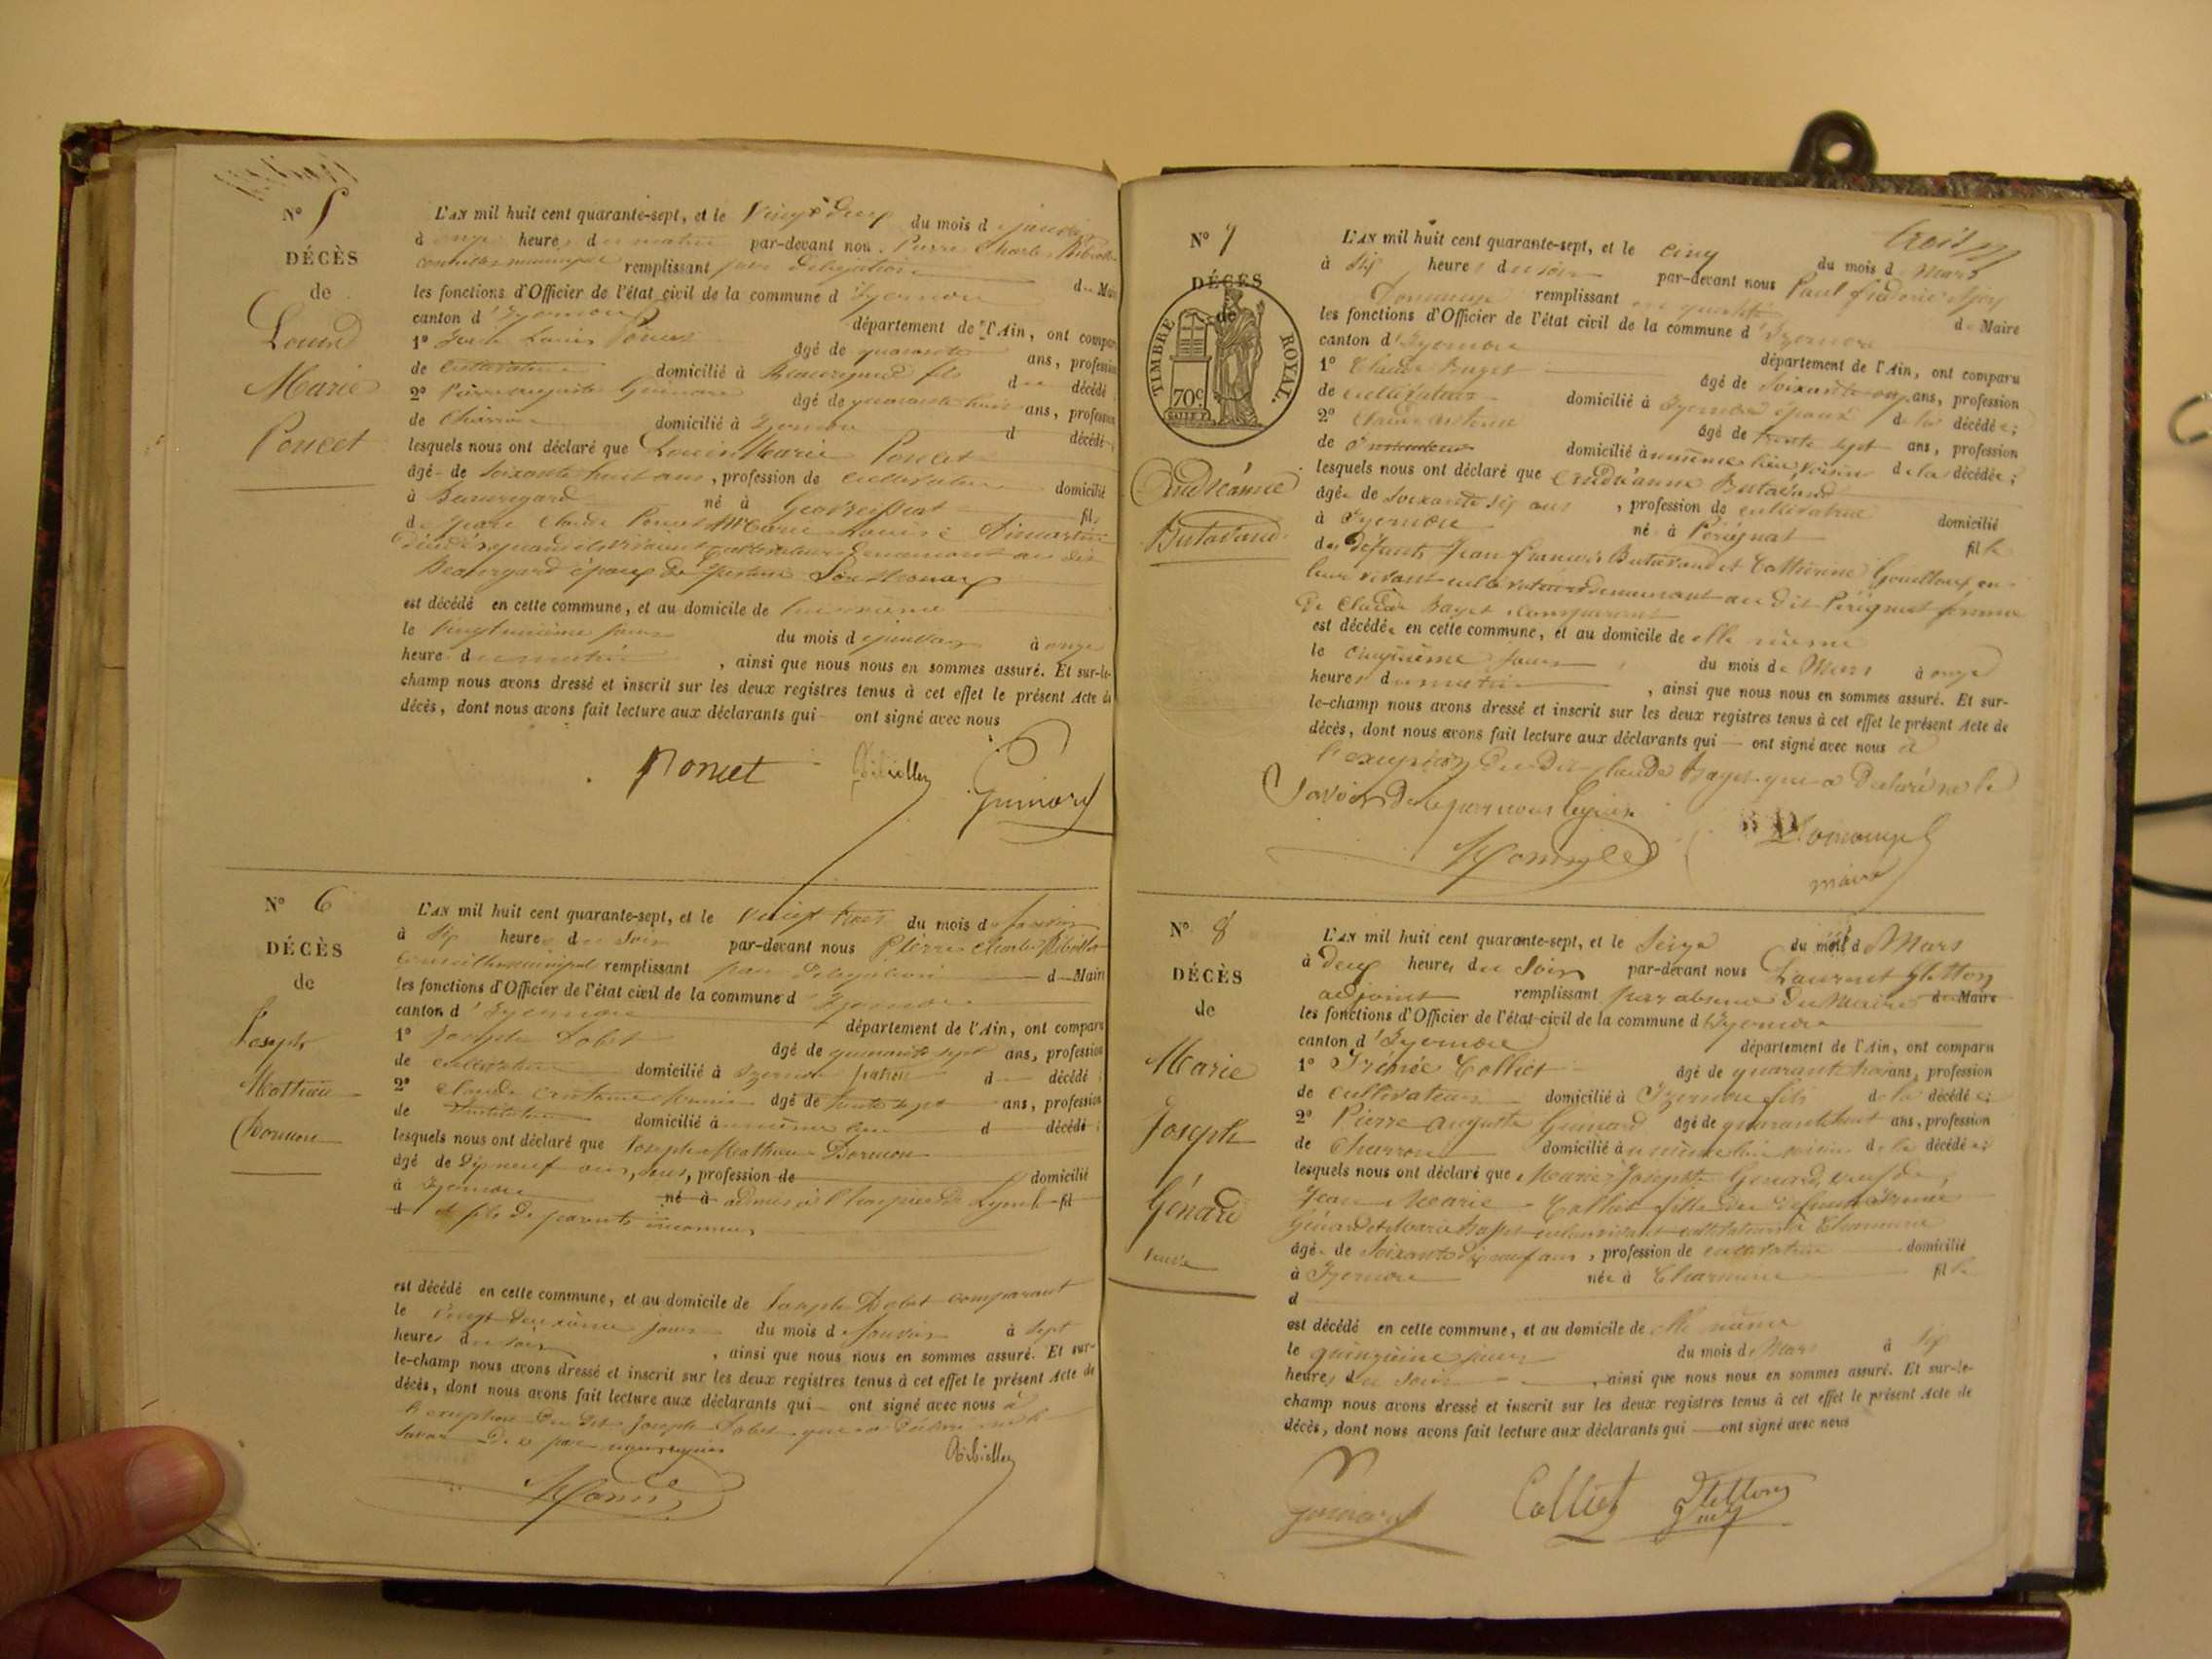 N° 5
DÉCÈS
de
Louis
Marie
Poncet
L'AN mil huit cent quarante-sept, et le Vingt deux du mois d janvier
à onze heures du matin par-devant nous Pierre Charles Ribiollet
conseiller municipal remplissant par délégation du Maire
les fonctions d'Officier de l'état civil de la commune d'Izernore
canton d'Izernore département de l'Ain, ont comparu
1° Louis Poncet âgé de quarante ans, profession
de cultivateur domicilié à Beauregard fils du décédé
2° Pierre auguste Guinard âgé de quarante huit ans, profession
de Charron domicilié à Izernore d décédé;
lesquels nous ont déclaré que Louis Marie Poncet
âgé de soixante huit ans, profession de cultivateur domicilié
à Beauregard né à Geovreissiat fils
de Claude Poncet et Marie
décédés quand ils vivaient cultivateurs demeurant au dit
Beauregard époux de
est décédé en cette commune, et au domicile de lui même
le Vingt unième jour du mois de janvier à onze
heures du matin, ainsi que nous nous en sommes assuré. Et sur-le-
champ nous avons dressé et inscrit sur les deux registres tenus à cet effet le présent Acte de
décès, dont nous avons fait lecture aux déclarants qui ont signé avec nous
Poncet Ribiollet Guinard
N° 6
DÉCÈS
de
Joseph
Mathieu
L'AN mil huit cent quarante-sept, et le vingt trois du mois de Janvier
à six heures du Soir par-devant nous Pierre Charles Ribiollet
Conseiller municipal remplissant par délégation d Maire
les fonctions d'Officier de l'état civil de la commune d'Izernore
canton d'Izernore département de l'Ain, ont comparu
1° Joseph Dobet âgé de quarante sept ans, profession
de cultivateur domicilié à Izernore patron d décédé;
2° Claude Antoine âgé de trente sept ans, profession
de Instituteur domicilié à même lieu d décédé;
lesquels nous ont déclaré que Joseph Mathieu
âgé de Dix neuf ans, profession de domicilié
à Izernore né à admis à l'hospice de Lyon fil
d fils de parents inconnus
est décédé en cette commune, et au domicile de Joseph Dobet comparant
le Vingt deuxième jour du mois de Janvier à sept
heures du soir, ainsi que nous nous en sommes assuré. Et sur-
le-champ nous avons dressé et inscrit sur les deux registres tenus à cet effet le présent Acte de
décès, dont nous avons fait lecture aux déclarants qui ont signé avec nous à
l'exception du dit Joseph Dobet qui a déclaré ne le
savoir de ce par nous requis
Ribiollet
trois
N° 7
DÉCÈS
de
TIMBRE ROYAL.
70c
Andréanne
Butavand
L'AN mil huit cent quarante-sept, et le cinq du mois de Mars
à six heures du soir par-devant nous Paul frédéric
remplissant en qualité de Maire
les fonctions d'Officier de l'état civil de la commune d'Izernore
canton d'Izernore département de l'Ain, ont comparu
1° Claude âgé de soixante ans, profession
de cultivateur domicilié à Izernore époux de la décédée;
2° Claude antoine âgé de trente sept ans, profession
de Instituteur domicilié à même lieu voisin de la décédée;
lesquels nous ont déclaré que Andréanne Butavand
âgée de soixante six ans, profession de cultivatrice domicilié
à Izernore né à Pérignat fille
des défunts Jean françois Butavand et Catherine Gouilloux en
leur vivant cultivateurs demeurant au dit Pérignat femme
de Claude comparant
est décédée en cette commune, et au domicile de elle même
le cinquième jour du mois de Mars à onze
heures du matin, ainsi que nous nous en sommes assuré. Et sur-
le-champ nous avons dressé et inscrit sur les deux registres tenus à cet effet le présent Acte de
décès, dont nous avons fait lecture aux déclarants qui ont signé avec nous à
l'exception du dit Claude qui a déclaré ne le
savoir de ce par nous requis
maire
N° 8
DÉCÈS
de
Marie
Joseph
Génard
veuve
L'AN mil huit cent quarante-sept, et le Seize du mois d Mars
à deux heures du Soir par-devant nous Laurent Gletton
adjoint remplissant par absence du Maire de Maire
les fonctions d'Officier de l'état civil de la commune d'Izernore
canton d'Izernore département de l'Ain, ont comparu
1° Irénée Colliet âgé de quarante trois ans, profession
de cultivateur domicilié à Izernore fils de la décédée;
2° Pierre auguste Guinard âgé de quarante huit ans, profession
de Charron domicilié à même lieu voisin de la décédée;
lesquels nous ont déclaré que Marie Josephte Génard, veuve de
Jean Marie Colliet fille du défunt
Génard et Marie en leur vivant cultivateurs à Charmine
âgé de Soixante dix neuf ans, profession de cultivatrice domicilié
à Izernore née à Charmine fille
d
est décédé en cette commune, et au domicile de elle même
le quinzième jour du mois de Mars à six
heures du Soir, ainsi que nous nous en sommes assuré. Et sur-le-
champ nous avons dressé et inscrit sur les deux registres tenus à cet effet le présent Acte de
décès, dont nous avons fait lecture aux déclarants qui ont signé avec nous
Guinard Colliet Gletton